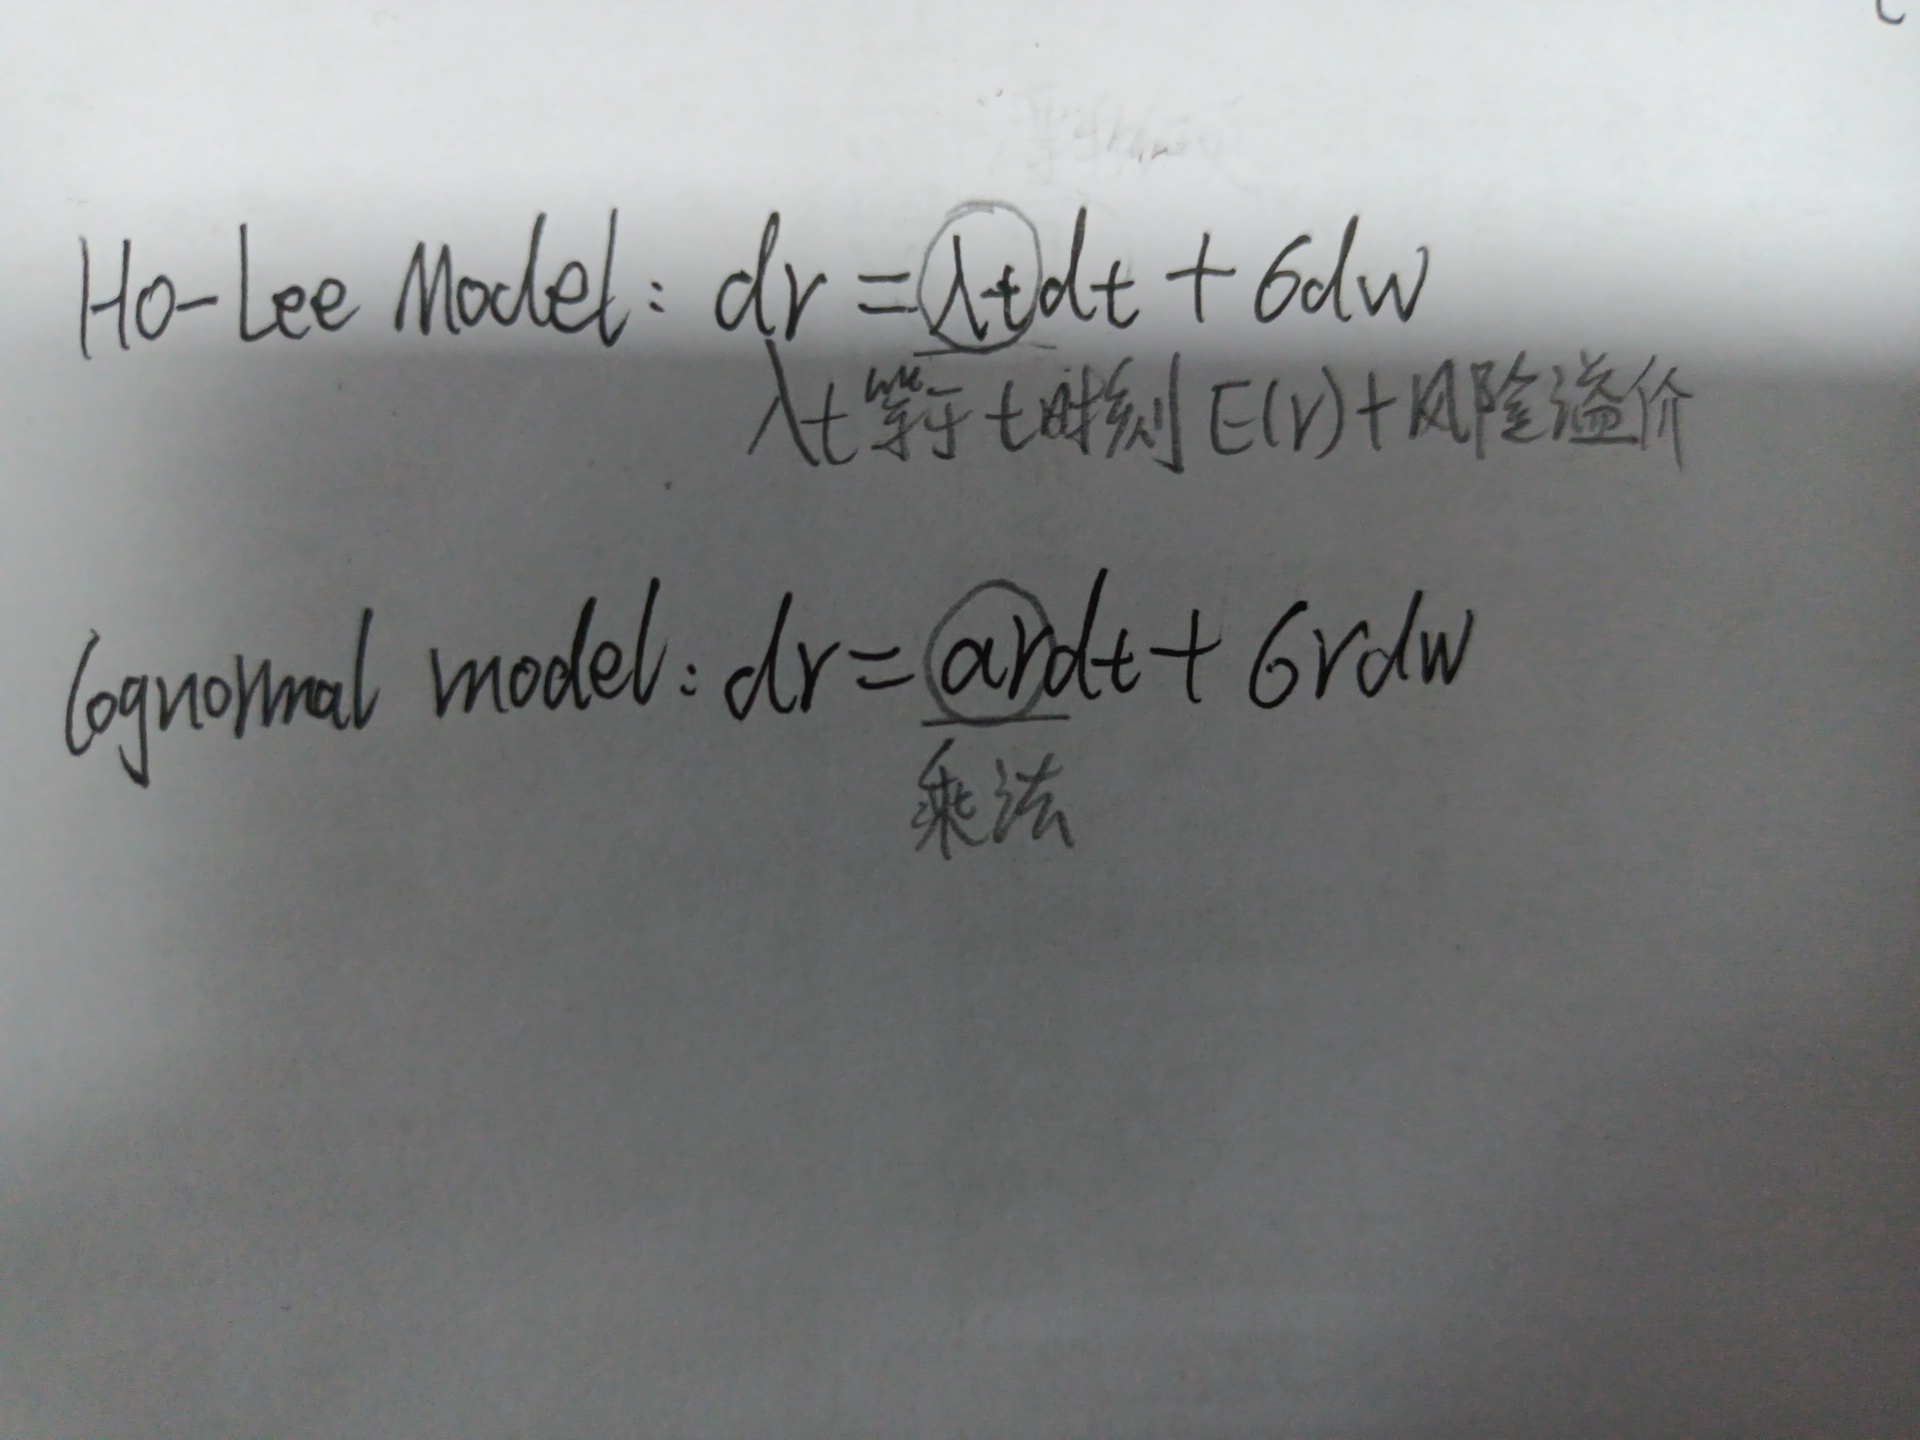 Ho-Lee Model: dr = λtdt + σdw
λt 等于 t时刻 E(r)+风险溢价
lognormal model: dr = ardt + σrdw
乘法